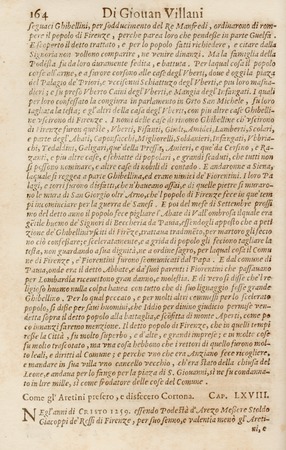 164 Di Giouan Villani
seguaci Ghibellini, per sodducimento del Re Manfredi, ordinarono di rom-
pere il popolo di Firenze, perche parea loro che pendesse in parte Guelfa.
E scoperto il detto trattato, e per lo popolo fatti richiedere, e citare dalla
Signoria non vollono comparire, ne venire dinanzi. Ma la famiglia della
Podestà fu da loro duramente fedita, e battuta. Per laqual cosa il popolo
corse all'arme, e a furore corsono alle case degl'Vberti, doue è oggi la piazza
del Palazzo de' Priori, e vccisonui Schiattuzo degl'Vberti, e piu loro masna-
dieri; e fu preso Vberto Caini degl'Vberti, e Mangia degl'Infangati. I quali
per loro confessata la congiura in parlamento in Orto San Michele, fu loro
tagliata la testa; e gl'altri della casa degl'Vberti, con piu altre case Ghibelli-
ne vscirono di Firenze. I nomi delle case di rinomo Ghibelline ch'vscirono
di Firenze furon queste, Vberti, Fifanti, Guidi, Amidei, Lamberti, Scolari,
e parte degl'Abati, Caponsacchi, Migliorelli, Soldanieri, Infangati, Vbria-
chi, Tedaldini, Galigari, que' della Pressa, Amieri, e que' da Cersino, e Raz-
zanti, e piu altre case, e schiatte di popolari, e grandi scaduti, che tutti non
si possono nominare, e altre case di nobili di contado. E andarono a Siena,
laquale si reggea a parte Ghibellina, ed erano nimici de' Fiorentini. I loro Pa-
lagi, e torri furono disfatti, che n'haueano assai, e di quelle pietre si muraro-
no le mura di San Giorgio oltr'Arno, che'l popolo di Firenze fece in que' tem-
pi cominciare per la guerra de' Sanesi. E poi del mese di Settembre prossi-
mo del detto anno il popolo fece pigliare l'Abate di Vall'ombrosa ilquale era
gentile huomo de' Signori di Beccheria da Pauia, essendogli apposto che a peti-
zione de' Ghibellini vsciti di Firenze, trattaua tradimento, per martoro gli fecio-
no ciò confessare; e sceleratamente, e a grida di popolo gli feciono tagliare la
testa, non guardando a sua dignità, ne a ordine sagro, per laqual cosa il Comu-
ne di Firenze, e' Fiorentini furono scomunicati dal Papa. E dal comune di
Pauia, onde era il detto Abbate, e da suoi parenti i Fiorentini che passauano
per Lombardia riceuettono gran danno, e molestia. E di vero si disse che'l re-
ligioso huomo nulla colpa hauea, con tutto che di suo lignaggio fosse grande
Ghibellino. Per lo qual peccato, e per molti altri commessi per lo scelerato
popolo, si disse per sani huomini, che Iddio per diuino giudicio permise ven-
detta sopra il detto popolo alla battaglia, e sconfitta di monte Aperti, come po-
co innanzi faremo menzione. Il detto popolo di Firenze, che in quelli tempi
resse la Città, fu molto superbo, e d'alte, e grandi imprese; e in molte cose
fu molto trascotato, ma vna cosa hebbono che i rettori di quello furono mol-
to leali, e diritti al Comune; e perche vno che era Anziano fece ricogliere,
e mandare in sua villa vno cancello vecchio, ch'era stato della chiusa del
Leone, e andaua per lo fango per la piazza di S. Giouanni, si ne fu condanna-
to in lire mille, si come frodatore delle cose del Comune.
Come gl'Aretini presero, e disfecero Cortona. CAP. LXVIII.
NEgl'anni di CRISTO 1259. essendo Podestà d'Arezo Messere Stoldo
Giacoppi de' Rossi di Firenze, per suo senno, e valentia menò gl'Areti-
ni, e